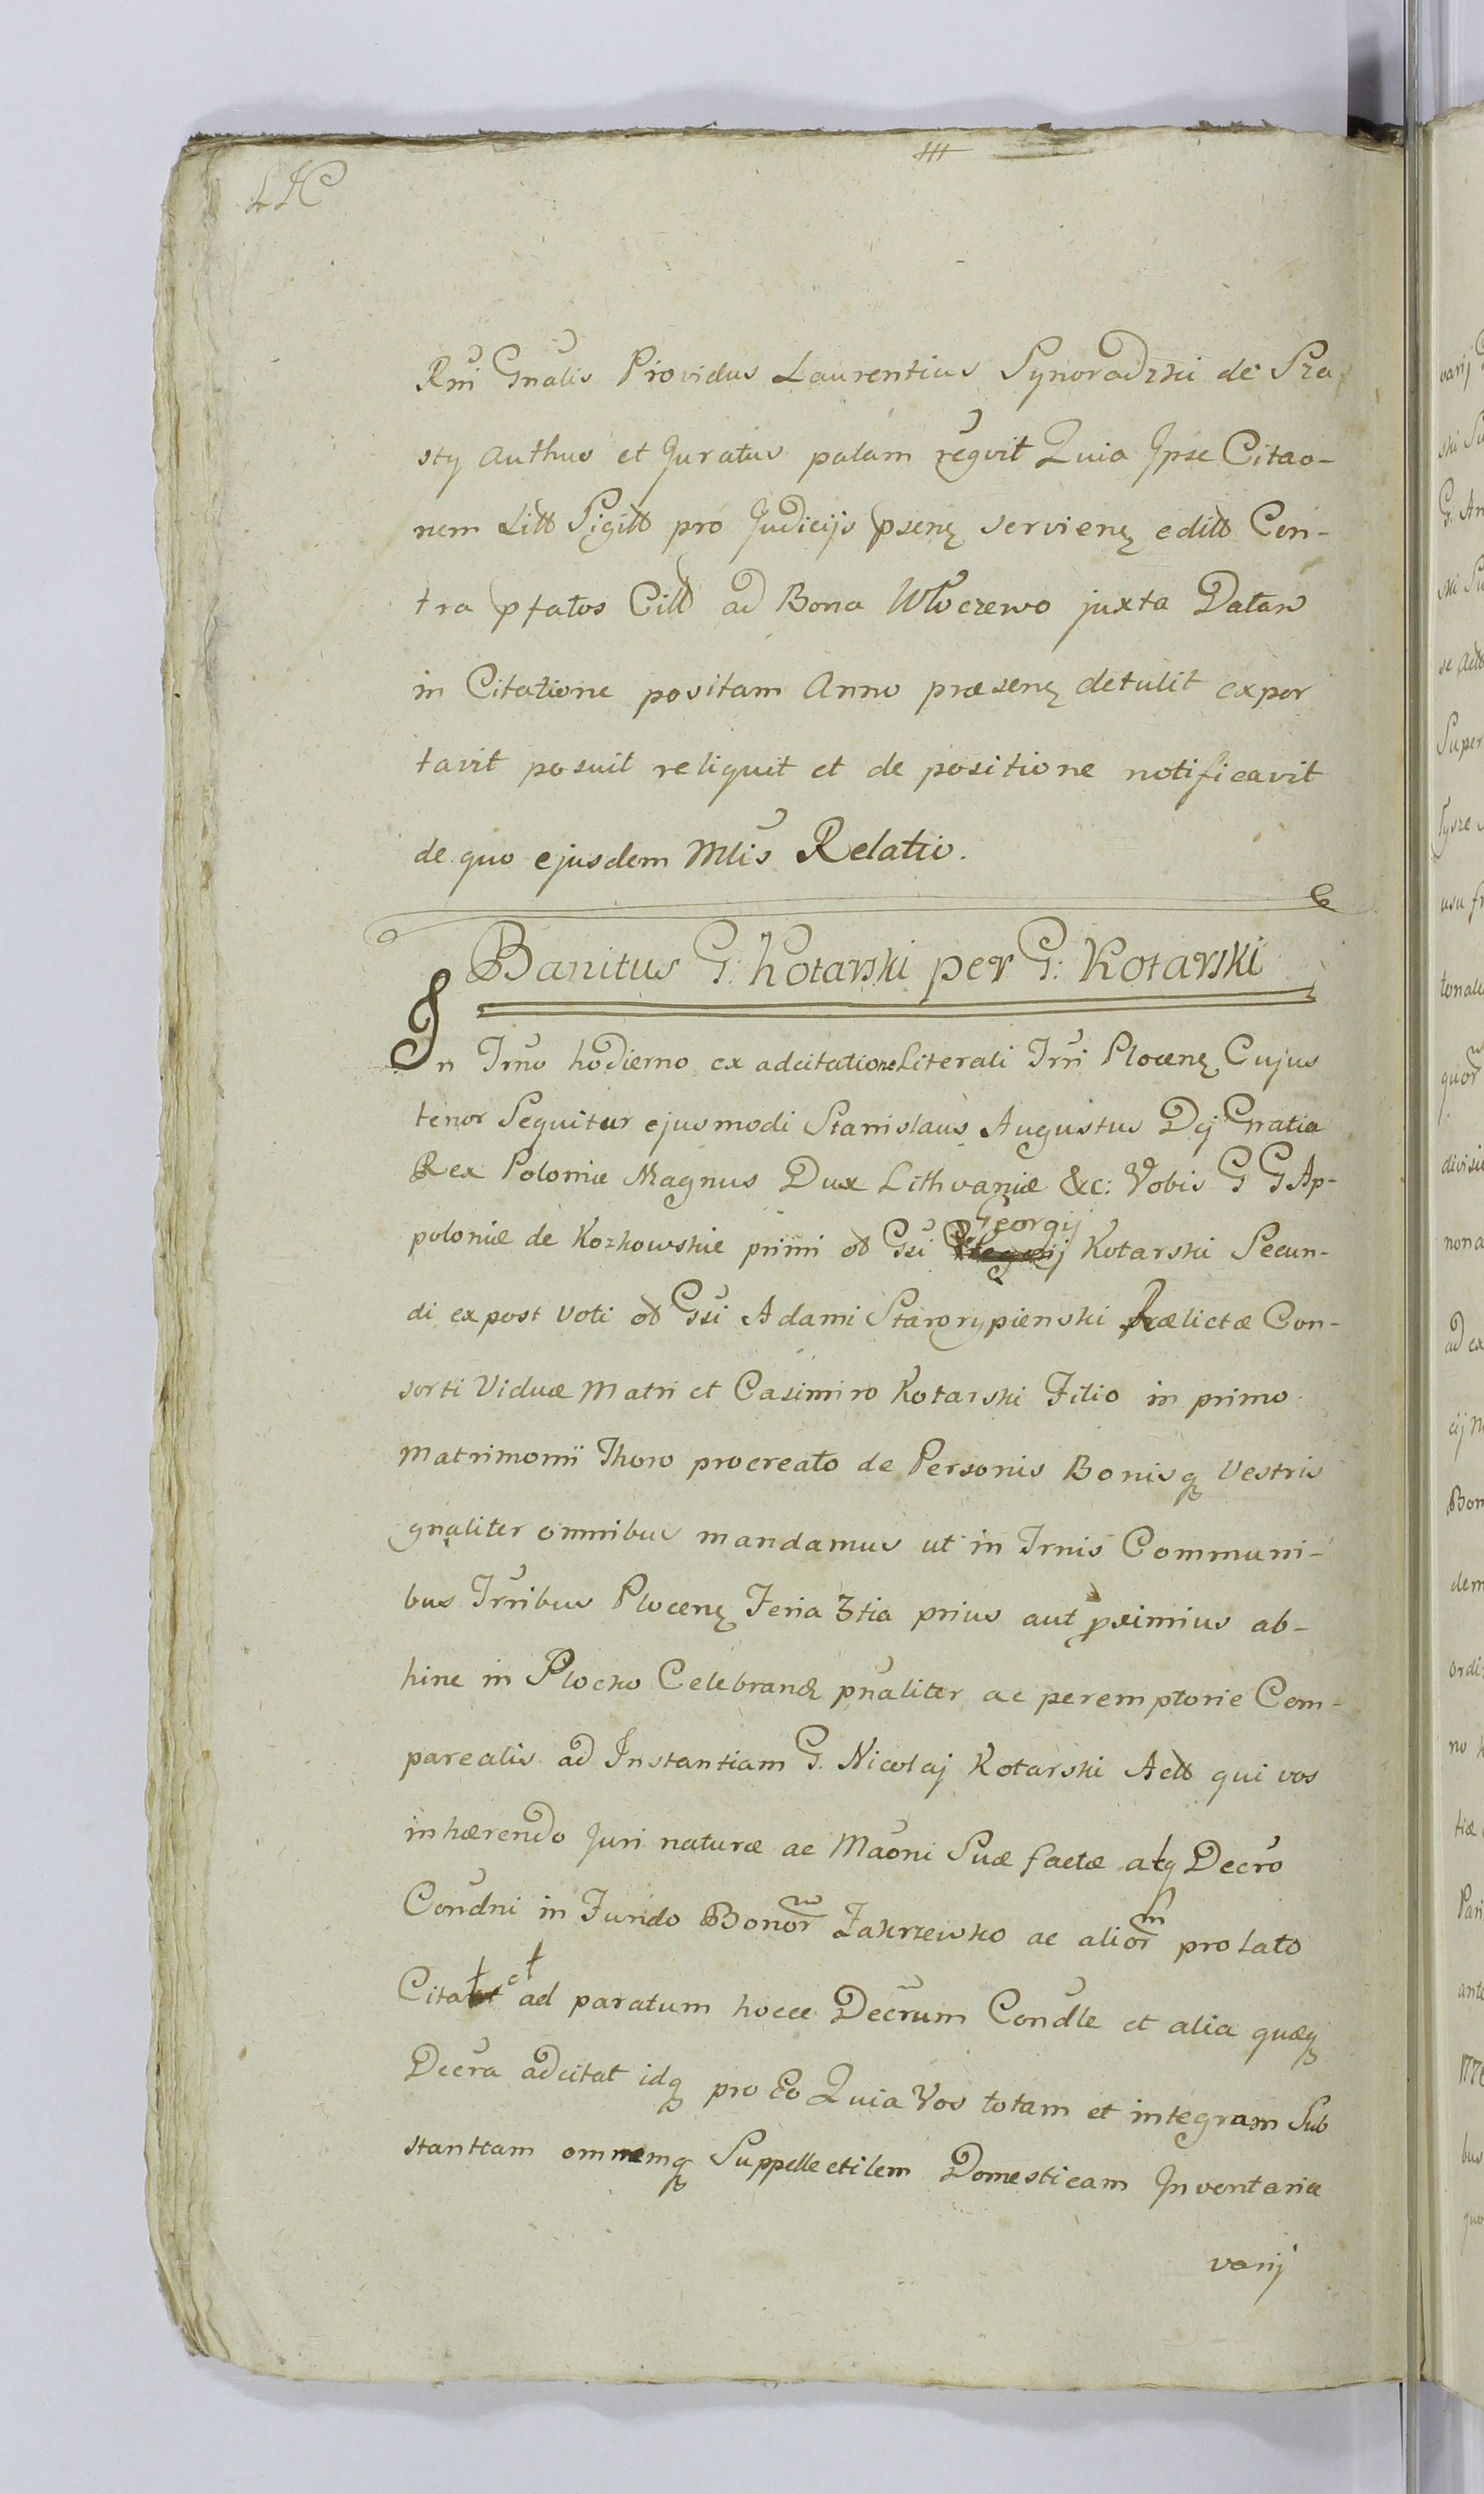 Rni Gnalis Providus Laurentius Synoradzki de Sza
sty Authus et Juratus palam regvit Quia Ipse Citao-
nem Litt Sigitt pro Judicijs psenz servienz editt Con-
tra pfatos Citt ad Bona Włoczewo juxta Datam
in Citatione positam Anno præsenz detulit expor
tavit posuit reliquit et de positione notificavit
de quo ejusdem Mlis Relatio.
Banitus G: Kotarski per G: Kotarski
In Trno hodierno ex adcitatione Literali Trri Plocenz Cujus
tenor Sequitur ejusmodi Stanislaus Augustus Dej Gnatia
Rex Poloniæ Magnus Dux Lithvaniæ &c: Vobis G G Ap-
poloniæ de Kozkowskie primi ob Gsi Georgij Kotarski Secun-
di expost voti ob Gsi Adami Starorypienski Rælictæ Con-
sorti Viduæ Matri et Casimiro Kotarski Filio in primo
Matrimonii Thoro procreato de Personis Bonisq Vestris
gnaliter omnibus mandamus ut in Trnis Communi-
bus Trribus Plocenz Feria 3tia prius aut pximius ab-
hinc in Plocko Celebrand pnaliter ac peremptorie Com-
parealis ad Instantiam G. Nicolaj Kotarski Actt qui vos
inhærendo Juri naturæ ac Maoni Suæ factæ atq Decro
Condni in Fundo Bonor Zakrzewko ac aliorm prolato
Citat et ad paratum hocce Decrum Condle et alia quæq
Decra adcitat idq pro Eo Quia Vos totam et integram Sub
stantiam omnemq Suppellectilem Domesticam Inventaria
varij